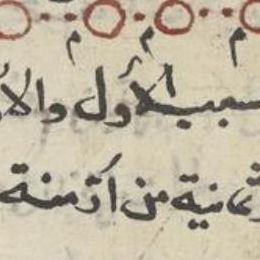 م م م
سبب الأول والأ
ثمانية من أزمنة